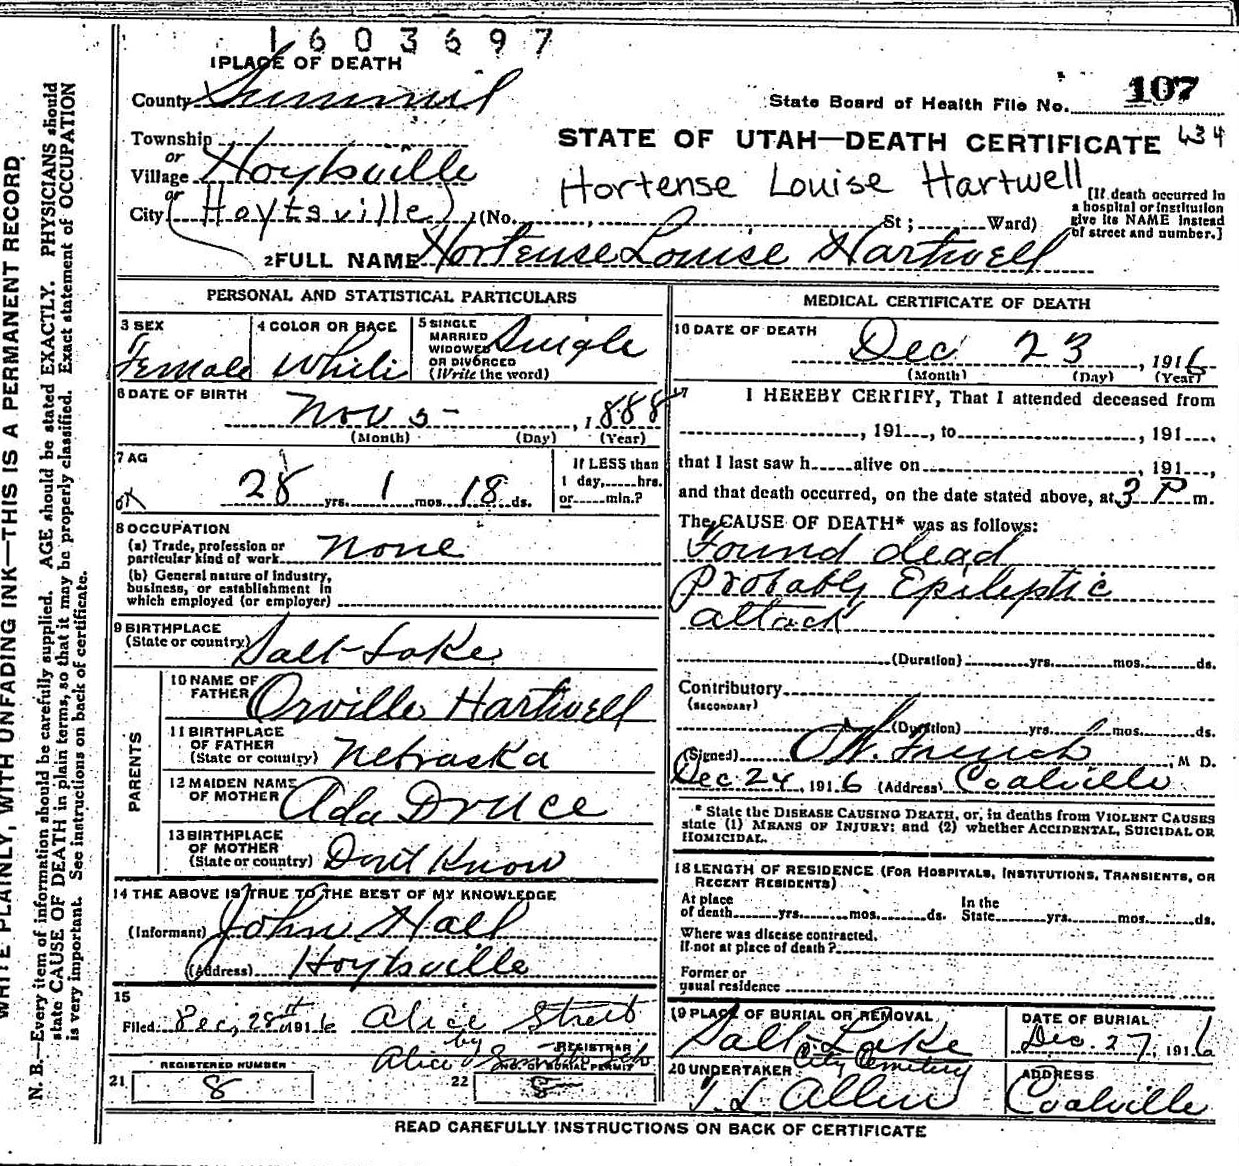 1603697
1 PLACE OF DEATH
County Summit
State Board of Health File No. 107
Township
or
Village Hoytsville
or
City (Hoytsville) (No. , St; Ward)
STATE OF UTAH—DEATH CERTIFICATE 434
Hortense Louise Hartwell
[If death occurred in
a hospital or institution
give its NAME instead
of street and number.]
2 FULL NAME Hortense Louise Hartwell
PERSONAL AND STATISTICAL PARTICULARS
3 SEX
Female
4 COLOR OR RACE
White
5 SINGLE
MARRIED
WIDOWED
OR DIVORCED
(Write the word)
Single
6 DATE OF BIRTH
Nov 5 , 1888
(Month) (Day) (Year)
7 AG
28 yrs. 1 mos. 18 ds.
If LESS than
1 day, hrs.
or min.?
8 OCCUPATION
(a) Trade, profession or
particular kind of work None
(b) General nature of industry,
business, or establishment in
which employed (or employer)
9 BIRTHPLACE
(State or country) Salt Lake
PARENTS
10 NAME OF
FATHER Orville Hartwell
11 BIRTHPLACE
OF FATHER
(State or country) Nebraska
12 MAIDEN NAME
OF MOTHER Ada Druce
13 BIRTHPLACE
OF MOTHER
(State or country) Dont Know
14 THE ABOVE IS TRUE TO THE BEST OF MY KNOWLEDGE
(Informant) John Hall
(Address) Hoytsville
15
Filed Dec, 28th 1916 Alice Street
REGISTRAR
by
Alice
REGISTERED NUMBER
21 8
NO. OF BURIAL PERMIT
22 8
MEDICAL CERTIFICATE OF DEATH
16 DATE OF DEATH
Dec 23 , 1916
(Month) (Day) (Year)
17 I HEREBY CERTIFY, That I attended deceased from
, 191 , to , 191 ,
that I last saw h alive on , 191 ,
and that death occurred, on the date stated above, at 3 P m.
The CAUSE OF DEATH* was as follows:
Found dead
Probably Epileptic
attack
(Duration) yrs. mos. ds.
Contributory
(SECONDARY)
(Duration) yrs. mos. ds.
(Signed) French , M D.
Dec 24 , 1916 (Address) Coalville
* State the DISEASE CAUSING DEATH, or, in deaths from VIOLENT CAUSES
state (1) MEANS OF INJURY; and (2) whether ACCIDENTAL, SUICIDAL OR
HOMICIDAL.
18 LENGTH OF RESIDENCE (FOR HOSPITALS, INSTITUTIONS, TRANSIENTS, OR
RECENT RESIDENTS)
At place
of death yrs. mos. ds.
In the
State yrs. mos. ds.
Where was disease contracted.
If not at place of death?
Former or
usual residence
19 PLACE OF BURIAL OR REMOVAL
Salt Lake
City Cemetery
DATE OF BURIAL
Dec. 27, 1916
20 UNDERTAKER
T. L. Allen
ADDRESS
Coalville
READ CAREFULLY INSTRUCTIONS ON BACK OF CERTIFICATE
WRITE PLAINLY, WITH UNFADING INK—THIS IS A PERMANENT RECORD
N. B.—Every item of information should be carefully supplied. AGE should be stated EXACTLY. PHYSICIANS should
state CAUSE OF DEATH in plain terms, so that it may be properly classified. Exact statement of OCCUPATION
is very important. See instructions on back of certificate.